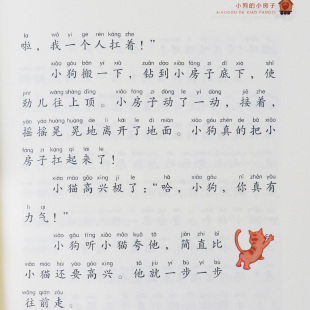 小狗的小房子
XIAOGOU DE XIAO FANGZI
la wǒ yí gè rén káng zhe
啦，我一个人扛着！”
xiǎo gǒu bān yí xià zuān dào xiǎo fáng zi dǐ xià shǐ
小狗搬一下，钻到小房子底下，使
jìnr wǎng shàng dǐng xiǎo fáng zi dòng le yí dòng jiē zhe
劲儿往上顶。小房子动了一动，接着，
yáo yáo huàng huàng de lí kāi le dì miàn xiǎo gǒu zhēn de bǎ xiǎo
摇摇晃晃地离开了地面。小狗真的把小
fáng zi káng qǐ lái le
房子扛起来了！
xiǎo māo gāo xìng jí le hā xiǎo gǒu nǐ zhēn yǒu
小猫高兴极了：“哈，小狗，你真有
lì qi
力气！”
xiǎo gǒu tīng xiǎo māo kuā tā jiǎn zhí bǐ
小狗听小猫夸他，简直比
xiǎo māo hái yào gāo xìng tā jiù yí bù yí bù
小猫还要高兴。他就一步一步
wǎng qián zǒu
往前走。